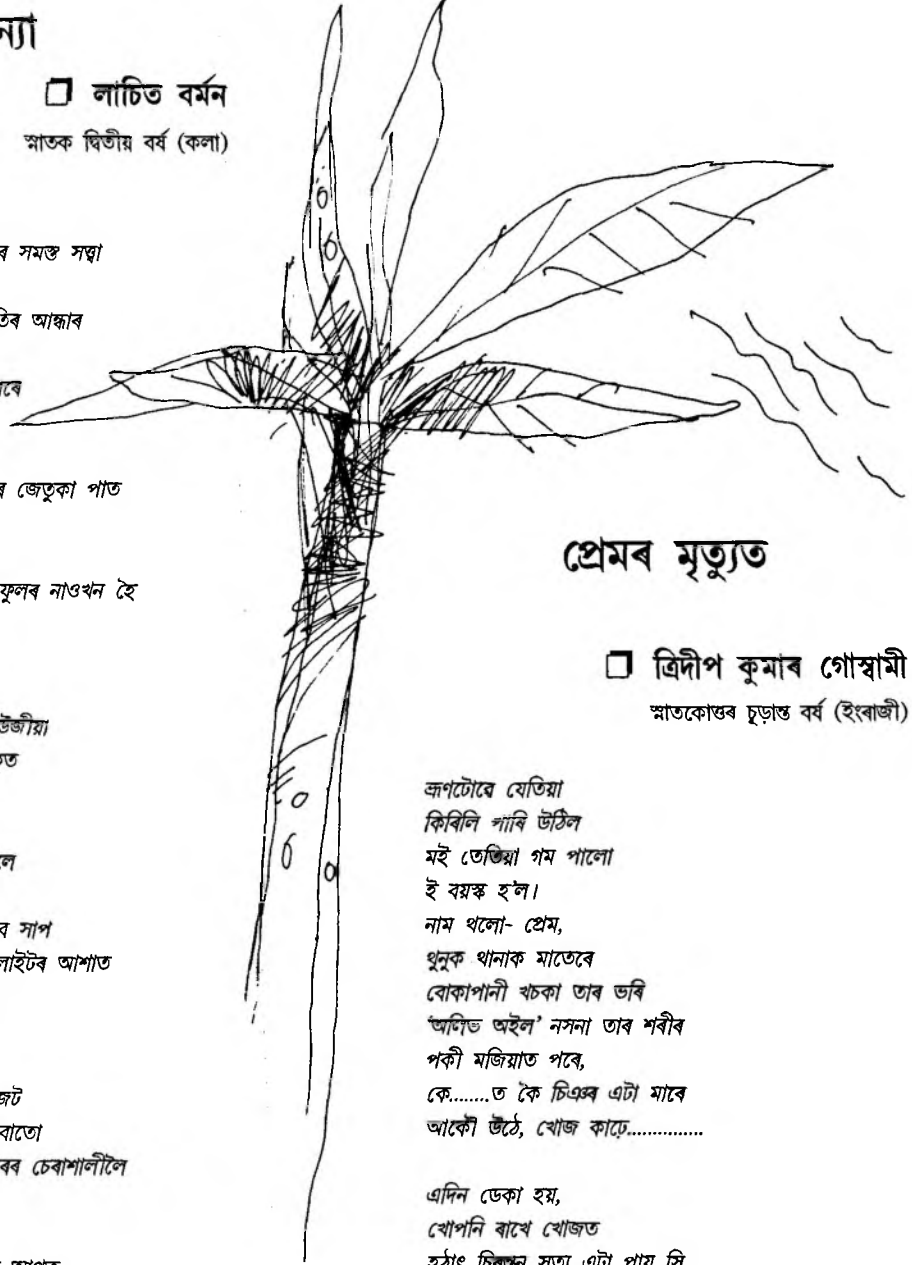 ন্যা
লাচিত বৰ্মন
স্নাতক দ্বিতীয় বৰ্ষ (কলা)
ৰ সমস্ত সত্বা
তিৰ আন্ধাৰ
ৰে
ৰ জেতুকা পাত
ফুলৰ নাওখন হৈ
উজীয়া
তত
লে
ৰ সাপ
লাইটৰ আশাত
জট
বাতো
ৰৰ চেৰাশালীলৈ
প্ৰেমৰ মৃত্যুত
ত্ৰিদীপ কুমাৰ গোস্বামী
স্নাতকোত্তৰ চূড়ান্ত বৰ্ষ (ইংৰাজী)
ভ্ৰূণটোৱে যেতিয়া
কিৰিলি পাৰি উঠিল
মই তেতিয়া গম পালো
ই বয়স্ক হ'ল।
নাম থলো- প্ৰেম,
থুনুক থানাক মাতেৰে
বোকাপানী খচকা তাৰ ভৰি
'অলিভ অইল' নসনা তাৰ শৰীৰ
পকী মজিয়াত পৰে,
কে........ত কৈ চিঞৰ এটা মাৰে
আকৌ উঠে, খোজ কাঢ়ে...............
এদিন ডেকা হয়,
খোপনি ৰাখে খোজত
হঠাৎ চিৰন্তন সত্য এটা পায় সি